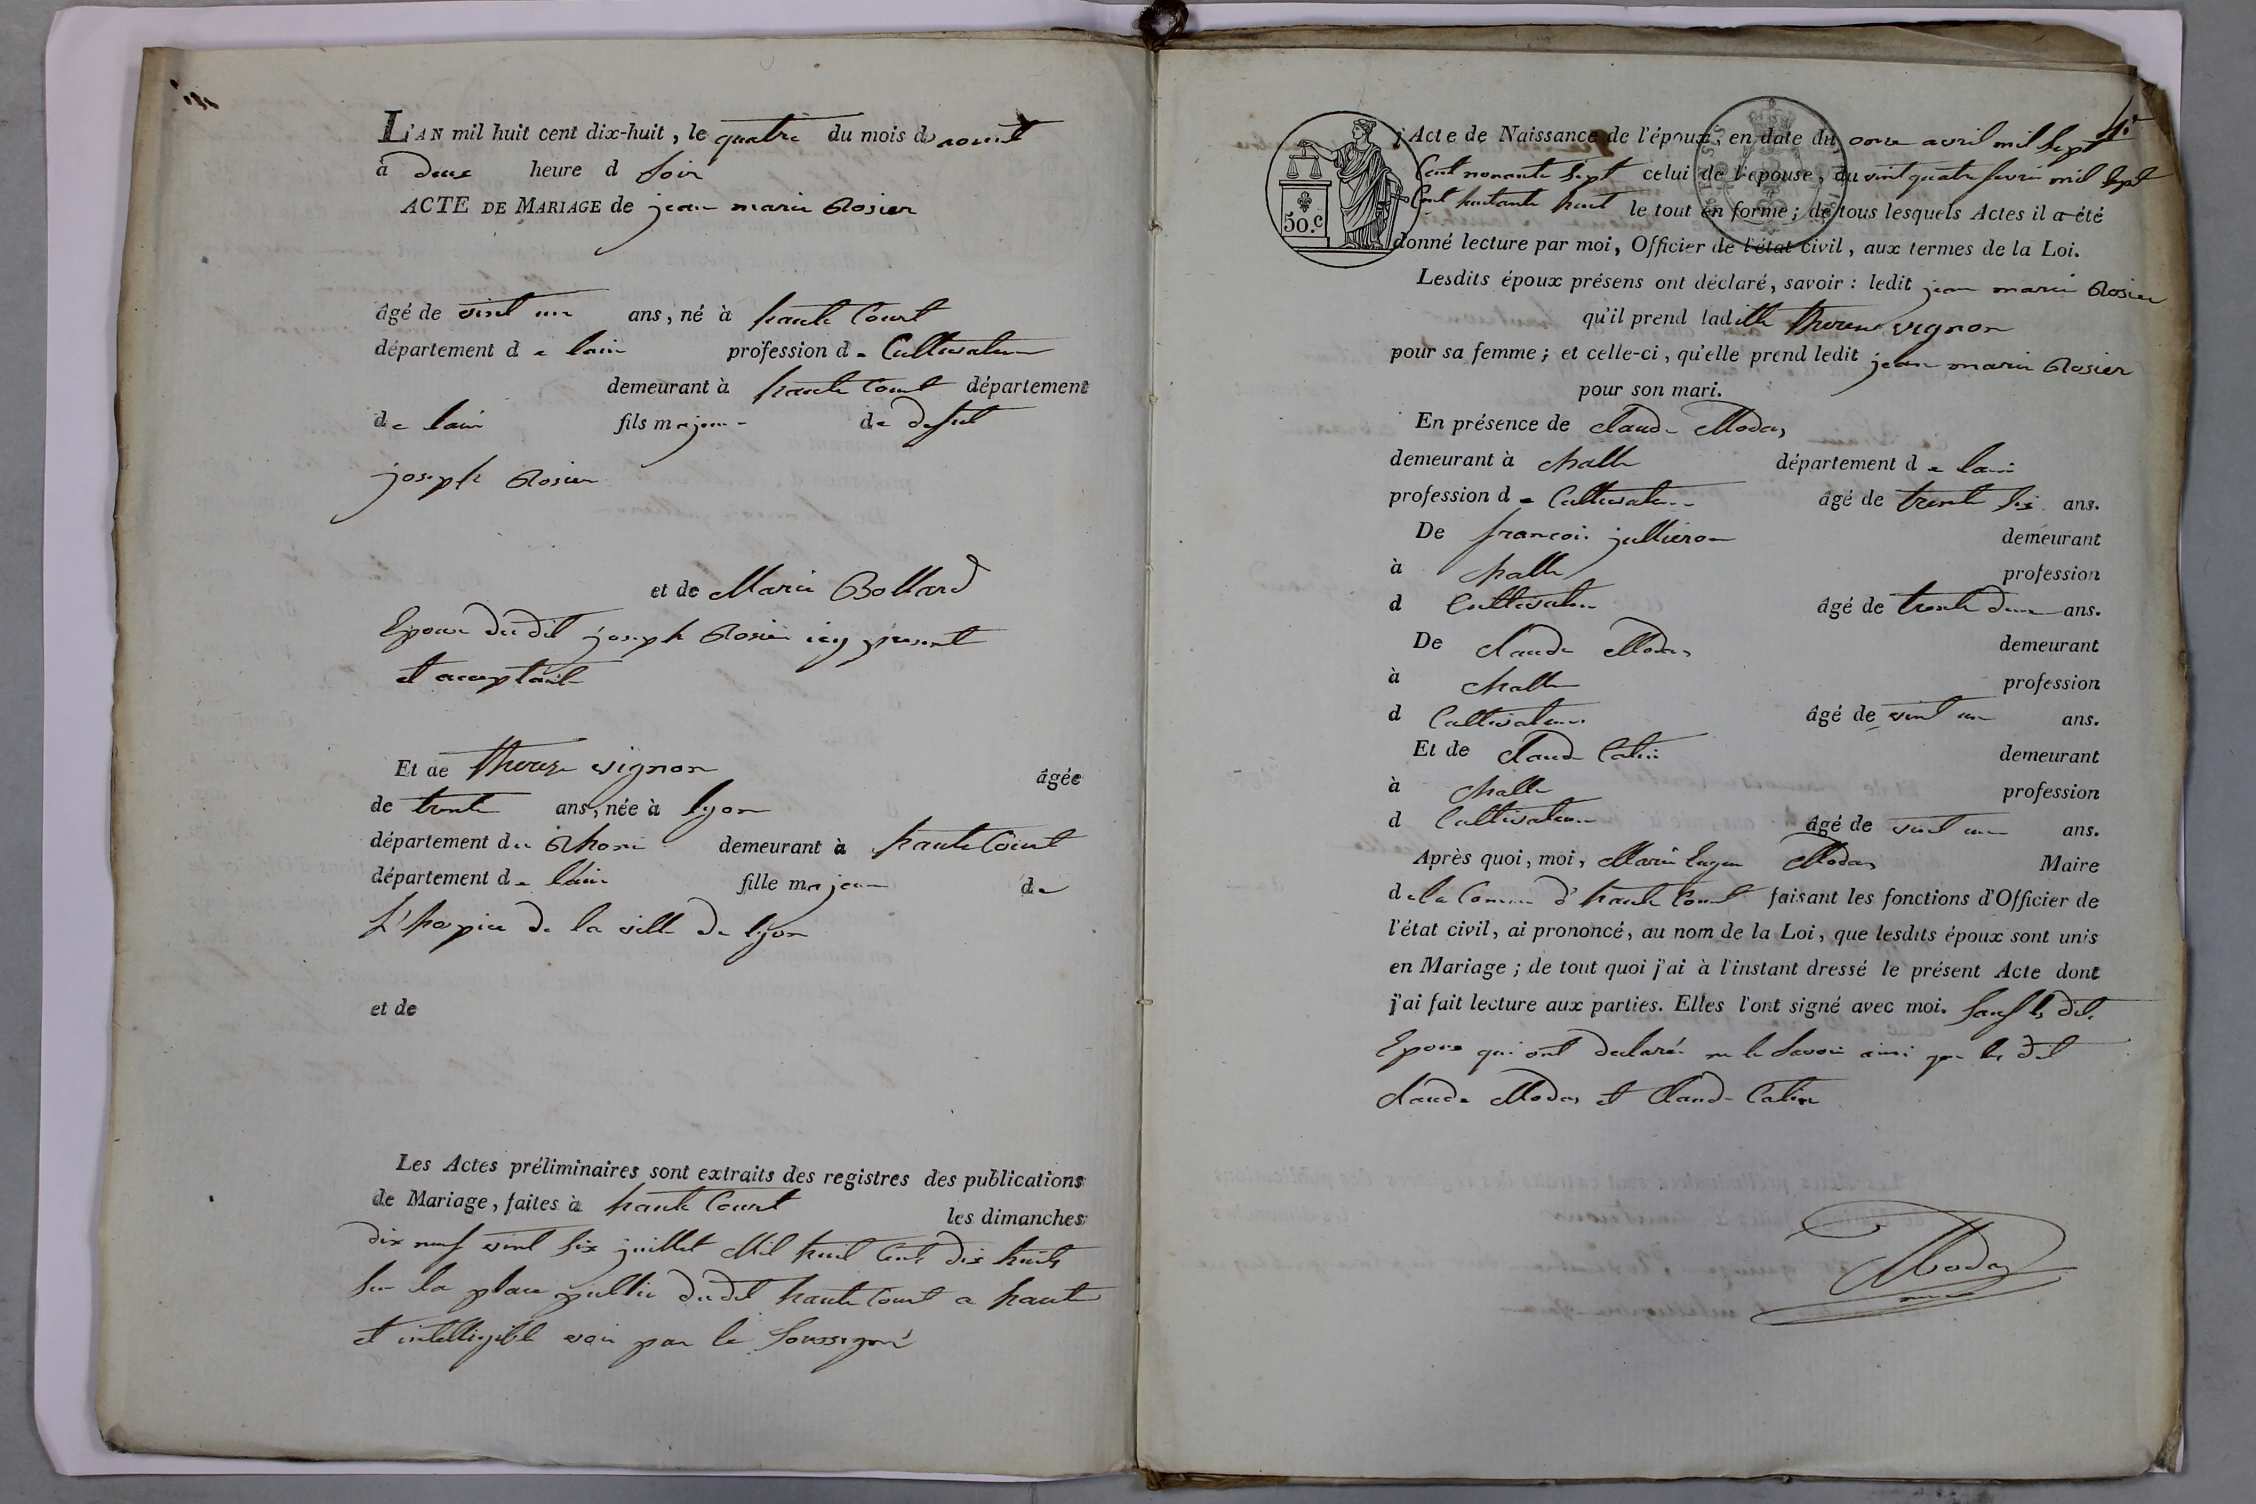 L'AN mil huit cent dix-huit, le quatre du mois d'aoust
à deux heure d soir
ACTE DE MARIAGE de jean marie Rosier
âgé de vint un ans, né à haute Court
département de lain profession de Cultivateur
demeurant à haute Court département
de lain fils majeur de defunt
joseph Rosier
et de Marie Bollard
Epouse dudit joseph Rosier icy present
et acceptant
Et de therese vignon âgée
de trente ans, née à lyon
département du Rhone demeurant à haute Court
département de lain fille majeure de
L'hospice de la ville de lyon
et de
Les Actes préliminaires sont extraits des registres des publications
de Mariage, faites à haute Court les dimanches
dix neuf vint six juillet Mil huit Cent dix huit
sur la place public dudit haute Court a haute
et intelligible voix par le Soussigné
50.c
Acte de Naissance de l'époux, en date du onze avril mil sept
Cent nonante sept celui de l'épouse, du vint quatre fevrier mil sept
Cent huitante huit le tout en forme; de tous lesquels Actes il a été
donné lecture par moi, Officier de l'état civil, aux termes de la Loi.
Lesdits époux présens ont déclaré, savoir: ledit jean marie Rosier
qu'il prend laditte therese vignon
pour sa femme; et celle-ci, qu'elle prend ledit jean marie Rosier
pour son mari.
En présence de claude Modas
demeurant à challe département de lain
profession de Cultivateur âgé de trente six ans.
De francois jullieron demeurant
à challe profession
d Cultivateur âgé de trente deux ans.
De claude Modas demeurant
à challe profession
d Cultivateur âgé de vint un ans.
Et de claude Catin demeurant
à challe profession
d Cultivateur âgé de vint un ans.
Après quoi, moi, Marie Eugene Modas Maire
de la Commune d'haute Court faisant les fonctions d'Officier de
l'état civil, ai prononcé, au nom de la Loi, que lesdits époux sont unis
en Mariage; de tout quoi j'ai à l'instant dressé le présent Acte dont
j'ai fait lecture aux parties. Elles l'ont signé avec moi. Sauf les dits
Epoux qui ont declaré ne le Savoir ainsi que les dit
claude Modas et Claude Catin
Modas